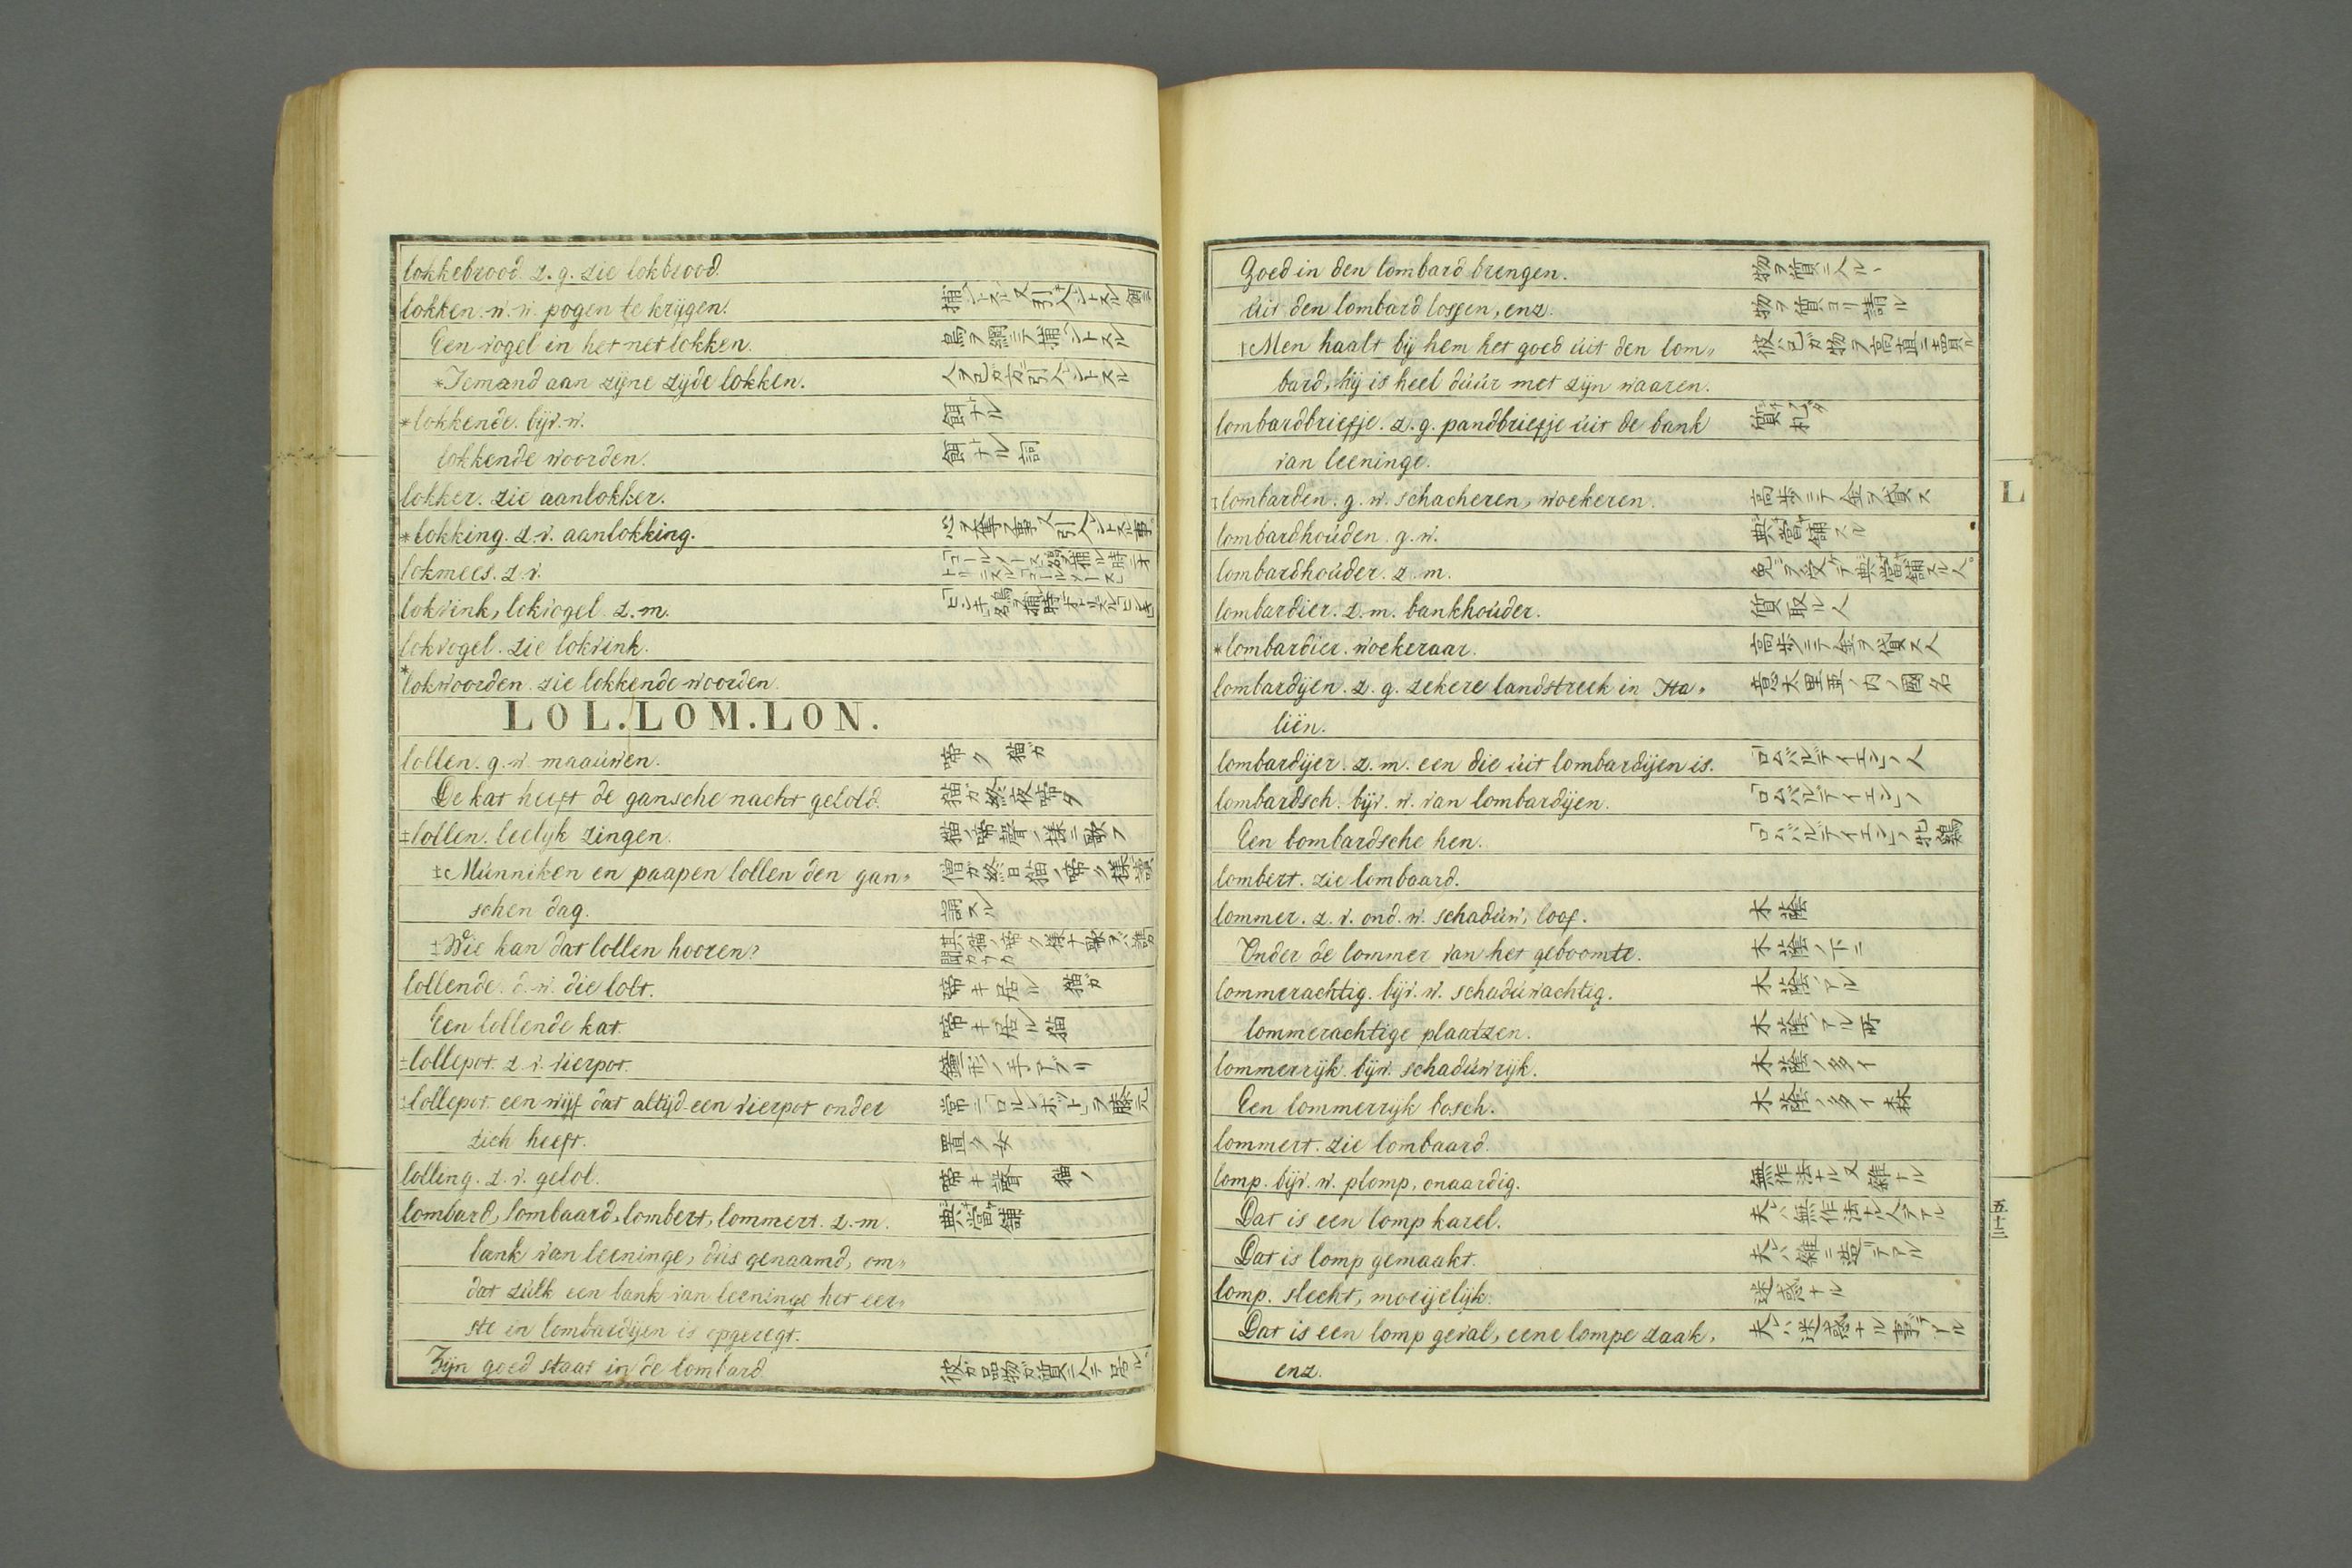 lokkebrood. z. g. zie lokbrood.
lokken. w. w. pogen te krijgen.
Een vogel in het net lokken. 鳥ヲ網ニテ捕ントスル
*Iemand aan zijne zijde lokken.
*lokkende. bijv. w. 餌ナル
lokkende woorden. 餌ナル詞
lokker. zie aanlokker.
*lokking. z. v. aanlokking.
lokmees. z. v.
lokvink, lokvogel. z. m.
lokvogel. zie lokvink.
*lokwoorden. zie lokkende woorden.
LOL. LOM. LON.
lollen. g. w. maaúwen. 啼ク 猫ガ
De kat heeft de gansche nacht gelold. 猫ガ終夜啼タ
±lollen. leelijk zingen. 猫ノ啼聲ノ様ニ歌フ
±Múnniken en paapen lollen den gan„ 僧ガ終日猫ノ啼ク様
schen dag.
±Wie kan dat lollen hooren?
lollende. d. w. die lolt. 啼キ居ル 猫ガ
Een lollende kat. 啼キ居ル猫
±lollepot. z. v. vierpot.
±lollepot. een wijf dat altijd een vierpot onder 常ニ「ロルレポット」ヲ膝元
zich heeft. 置ク女
lolling. z. v. gelol. 啼キ聲 猫ノ
lombard, lombaard, lombert, lommert. z. m. 典當鋪
bank van leeninge, dús genaamd, om„
dat zúlk een bank van leeninge het eer„
ste in lombardijen is opgeregt.
Zijn goed staat in de lombard. 彼ガ品物ガ質ニ入テ居ル
Goed in den lombard brengen. 物ヲ質ニ入ル
úit den lombard lossen, enz. 物ヲ質ヨリ請ル
±Men haalt bij hem het goed úit den lom„ 彼ハ己ガ物ヲ高直ニ賣ル
bard, hij is heel dúúr met zijn waaren.
lombardbriefje. z. g. pandbriefje úit de bank 質札
van leeninge.
±lombarden. g. w. schacheren, woekeren. 高歩ニテ金ヲ貸ス
lombardhoúden. g. w. 典當鋪スル
lombardhoúder. z. m. 免ヲ受ケテ典當鋪スル人
lombardier. z. m. bankhoúder. 質取ル人
*lombardier. woekeraar. 高歩ニテ金ヲ貸ス人
lombardijen. z. g. zekere landstreek in Ita„ 意太里亜ノ内ノ國名
liën.
lombardijer. z. m. een die úit lombardijen is. 「ロムバルディイエン」ノ人
lombardsch. bijv. w. van lombardijen. 「ロムバルディイエン」ノ
Een lombardsche hen. 「ロムバルディイエン」ノ牝鷄
lombert. zie lombaard.
lommer. z. v. ond. w. schadúw, loof. 木蔭
Onder de lommer van het geboomte. 木蔭ノ下ニ
lommerachtig. bijv. w. schadúwachtig. 木蔭ノアル
lommerachtige plaatzen. 木蔭ノアル所
lommerrijk. bijv. schadúwrijk. 木蔭ノ多イ
Een lommerrijk bosch. 木蔭ノ多イ森
lommert. zie lombaard.
lomp. bijv. w. plomp, onaardig. 無作法ナル又雑ナル
Dat is een lomp karel. 夫ハ無作法ナル人デアル
Dat is lomp gemaakt. 夫ハ雑ニ造テアル
lomp. slecht, moeijelijk. 迷惑ナル
Dat is een lomp geval, eene lompe zaak, 夫ハ迷惑ナル事デアル
enz.
L
五十三